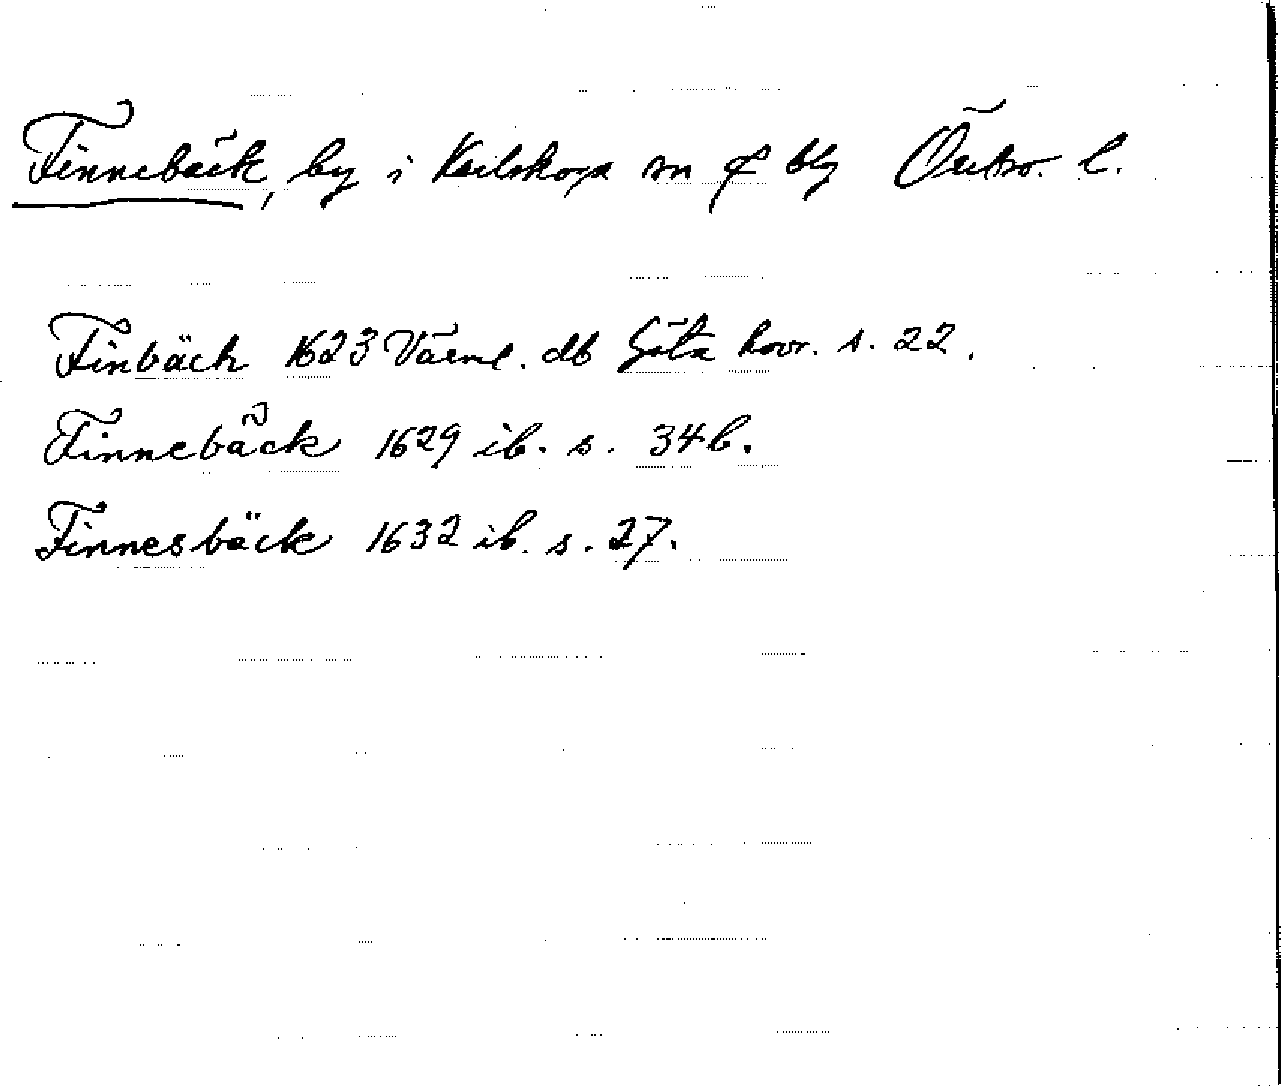 Finnebäck, by i Karlskoga sn o bg Örebro. l.
Finbäck 1623 Värml. db Göta hovr. s. 22.
Finnebåck 1629 ib. s. 34b.
Finnesbäck 1632 ib. s. 27.